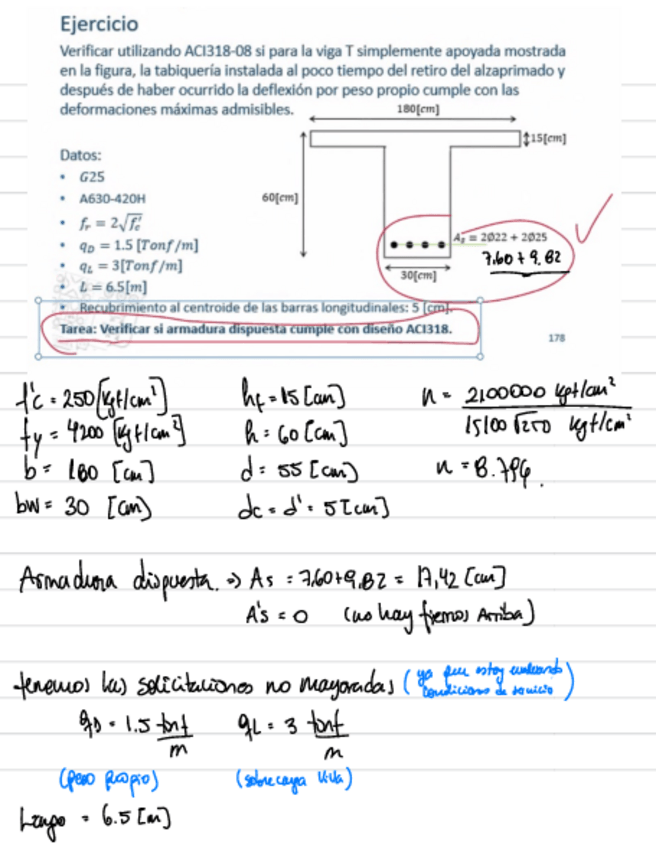 Ejercicio
Verificar utilizando ACI318-08 si para la viga T simplemente apoyada mostrada
en la figura, la tabiquería instalada al poco tiempo del retiro del alzaprimado y
después de haber ocurrido la deflexión por peso propio cumple con las
deformaciones máximas admisibles.
180[cm]
15[cm]
Datos:
• G25
• A630-420H
60[cm]
• fr = 2√f'c
• qD = 1.5 [Tonf/m]
As = 2Ø22 + 2Ø25
• qL = 3[Tonf/m]
7.60 + 9.82
• L = 6.5[m]
30[cm]
• Recubrimiento al centroide de las barras longitudinales: 5 [cm].
Tarea: Verificar si armadura dispuesta cumple con diseño ACI318.
178
f'c = 250 [kgf/cm²] hf = 15 [cm] n = 2100000 kgf/cm² / 15100 √250 kgf/cm²
fy = 4200 [kgf/cm²] h = 60 [cm]
b = 180 [cm] d = 55 [cm] n = 8.796.
bw = 30 [cm] dc = d' = 5 [cm]
Armadura dispuesta. => As = 7,60+9,82 = 17,42 [cm]
A's = 0 (no hay fierros Arriba)
tenemos las solicitaciones no mayoradas (ya que estoy evaluando
condiciones de servicio)
qD = 1.5 tonf/m qL = 3 tonf/m
(peso propio) (sobrecarga viva)
Largo = 6.5 [m]